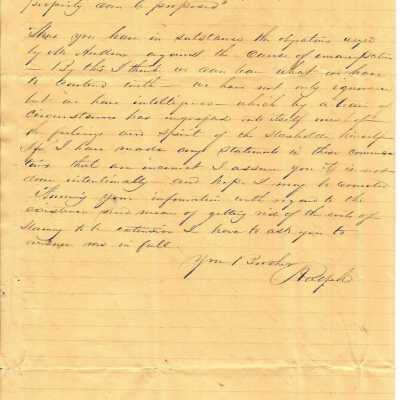 property can be proposed"
Thus you have in substance the objections urged
by Mr Andrew against the cause of emancipation
By this I think we can learn what we have
to contend with - we have not only ignorance
but we have intelligence which by a train of
circumstances has ingrafed into itself most of
the feelings and spirit of the Slaveholder himself
If I have made any statements in these communica
tions that are incorrect I assure you it is not
done intentionally and hope I may be corrected
Knowing your information with regard to the
and means of getting rid of the evils of
Slavery to be extensive I have to ask you to
answer me in full.
Your Brother